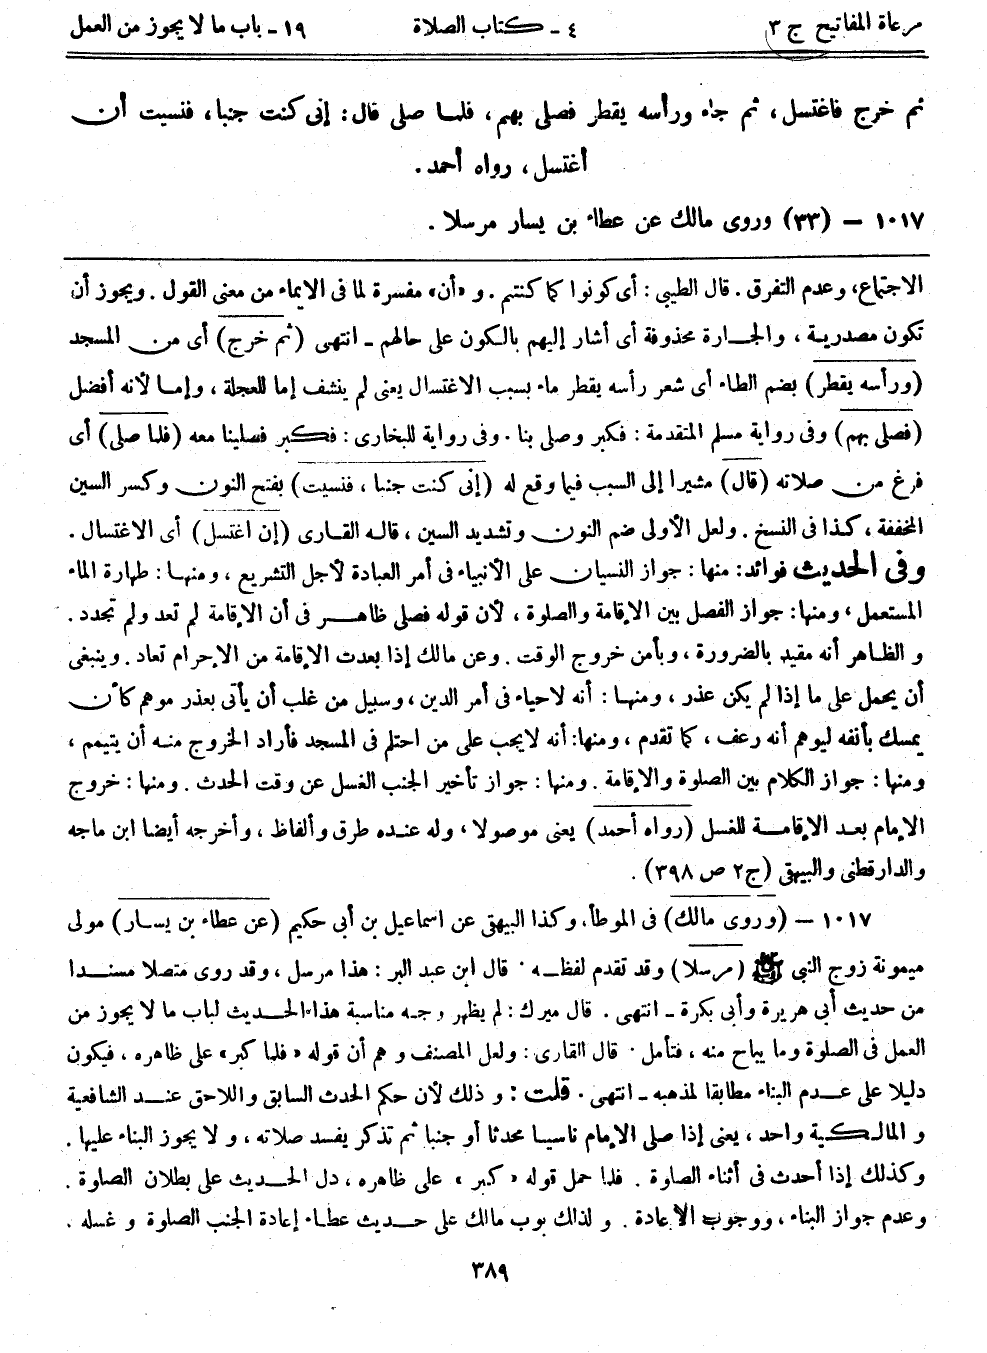 مرعاة المفاتيح ج ٣
٤ ـ كتاب الصلاة
١٩ ـ باب ما لا يجوز من العمل
ثم خرج فاغتسل، ثم جاء ورأسه يقطر فصلى بهم، فلما صلى قال: إنى كنت جنبا، فنسيت أن
أغتسل، رواه أحمد.
١٠١٧ – (٣٣) وروى مالك عن عطاء بن يسار مرسلا.
الاجتماع، وعدم التفرق. قال الطيبي: أى كونوا كما كنتم. و «أن» مفسرة لما فى الايماء من معنى القول. ويجوز أن
تكون مصدرية، والجارة محذوفة أى أشار إليهم بالكون على حالهم ـ انتهى (ثم خرج) أى من المسجد
(ورأسه يقطر) بضم الطاء أى شعر رأسه يقطر ماء بسبب الاغتسال يعنى لم ينشف إما للعجلة، وإما لأنه أفضل
(فصلى بهم) وفى رواية مسلم المتقدمة: فكبر وصلى بنا. وفى رواية للبخارى: فكبر فصلينا معه (فلما صلى) أى
فرغ من صلاته (قال) مشيرا إلى السبب فيما وقع له (إنى كنت جنبا، فنسيت) بفتح النون وكسر السين
المخففة، كذا فى النسخ. ولعل الأولى ضم النون وتشديد السين، قاله القارى (إن اغتسل) أى الاغتسال.
وفى الحديث فوائد: منها: جواز النسيان على الأنبياء فى أمر العبادة لأجل التشريع، ومنها: طهارة الماء
المستعمل، ومنها: جواز الفصل بين الإقامة والصلوة، لأن قوله فصلى ظاهر فى أن الإقامة لم تعد ولم تجدد.
و الظاهر أنه مقيد بالضرورة، وبأمن خروج الوقت. وعن مالك إذا بعدت الإقامة من الإحرام تعاد. وينبغى
أن يحمل على ما إذا لم يكن عذر، ومنها: أنه لاحياء فى أمر الدين، وسبيل من غلب أن يأتى بعذر موهم كأن
يمسك بأنفه ليوهم أنه رعف، كما تقدم، ومنها: أنه لايجب على من احتلم فى المسجد فأراد الخروج منه أن يتيمم،
ومنها: جواز الكلام بين الصلوة والإقامة. ومنها: جواز تأخير الجنب الغسل عن وقت الحدث. ومنها: خروج
الإمام بعد الإقامة للغسل (رواه أحمد) يعنى موصولا، وله عنده طرق وألفاظ، وأخرجه أيضا ابن ماجه
والدارقطنى والبيهقى (ج٢ ص ٣٩٨).
١٠١٧ – (وروى مالك) فى الموطأ، وكذا البيهقى عن اسماعيل بن أبي حكيم (عن عطاء بن يسار) مولى
ميمونة زوج النبى ﷺ (مرسلا) وقد تقدم لفظه. قال ابن عبد البر: هذا مرسل، وقد روى متصلا مسندا
من حديث أبي هريرة وأبي بكرة ـ انتهى. قال ميرك: لم يظهر وجه مناسبة هذا الحديث لباب ما لا يجوز من
العمل فى الصلوة وما يباح منه، فتأمل. قال القارى: ولعل المصنف وهم أن قوله «فلما كبر» على ظاهره، فيكون
دليلا على عدم البناء مطابقا لمذهبه ـ انتهى. قلت: و ذلك لأن حكم الحدث السابق واللاحق عند الشافعية
و المالكية واحد، يعنى إذا صلى الإمام ناسيا محدثا أو جنبا ثم تذكر يفسد صلاته، و لا يجوز البناء عليها.
وكذلك إذا أحدث فى أثناء الصلوة. فلما حمل قوله «كبر» على ظاهره، دل الحديث على بطلان الصلوة.
وعدم جواز البناء، ووجوب الاعادة. و لذلك بوب مالك على حديث عطاء إعادة الجنب الصلوة و غسله.
٣٨٩